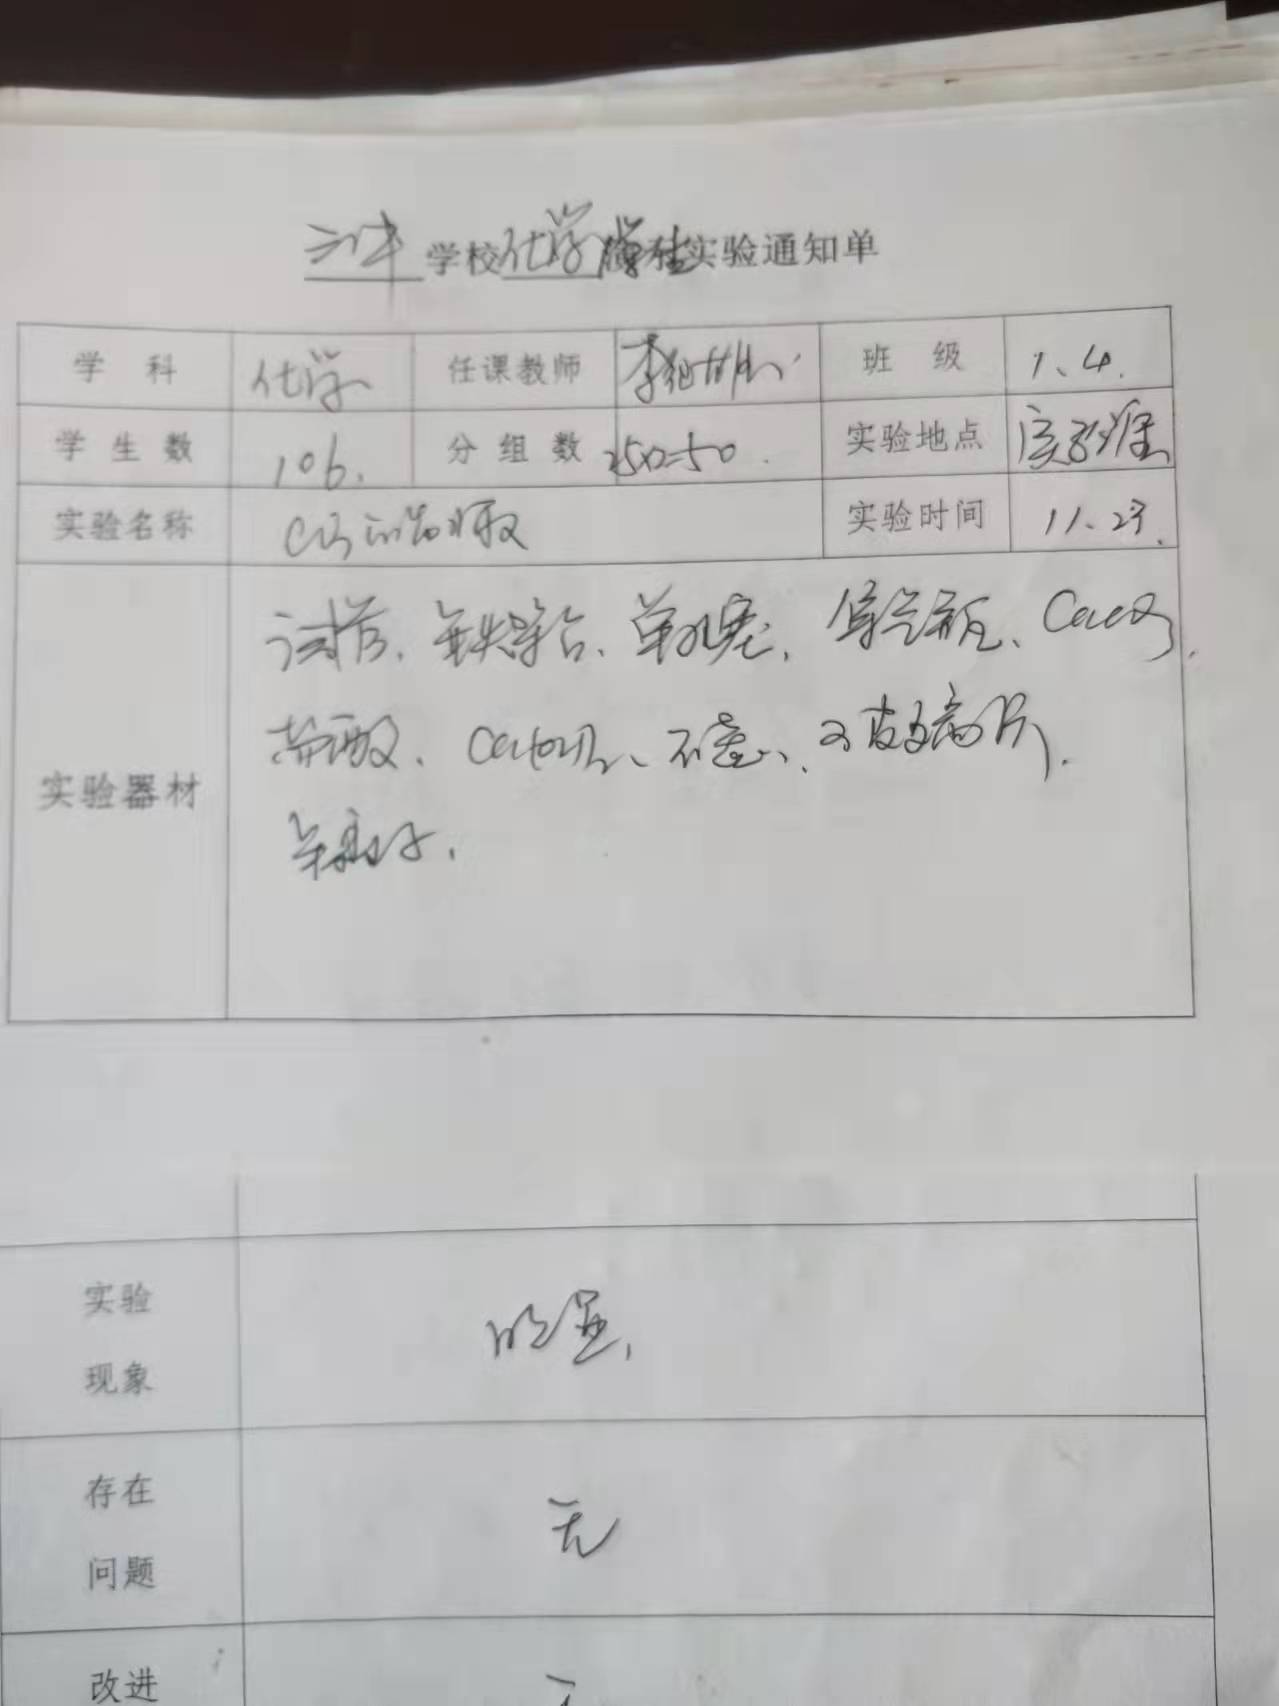 学校化学实验通知单
学科 化学 任课教师 李 班级 1、4.
学生数 106. 分组数 25×2=50. 实验地点 实验室
实验名称 CO₂的制取 实验时间 11、23.
实验器材
试管、铁架台、单孔塞、集气瓶、CaCO₃、
盐酸、Ca(OH)₂、石蕊、玻璃片.
实验
现象
明显.
存在
问题
无
改进